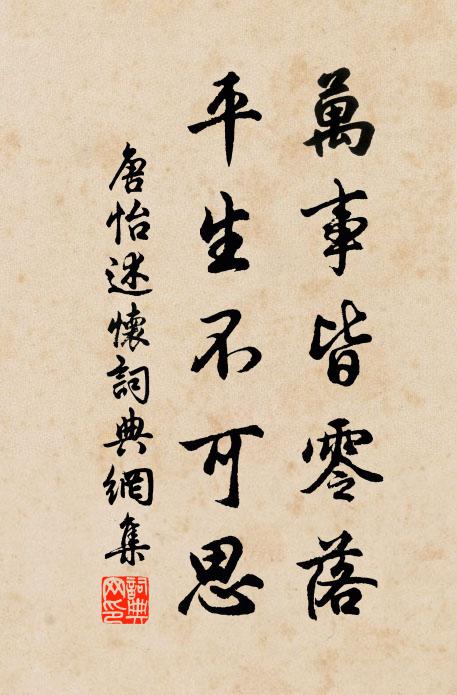 萬事皆零落
平生不可思
唐怡述懷詞典網集
詞典網印